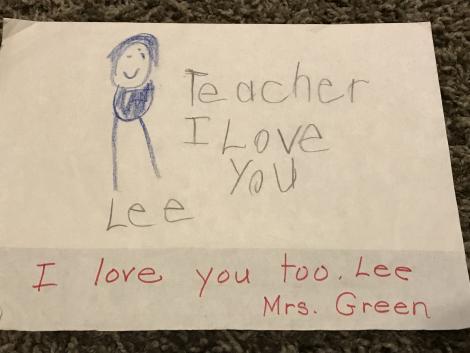 Teacher
I Love
You
Lee
I love you too. Lee
Mrs. Green